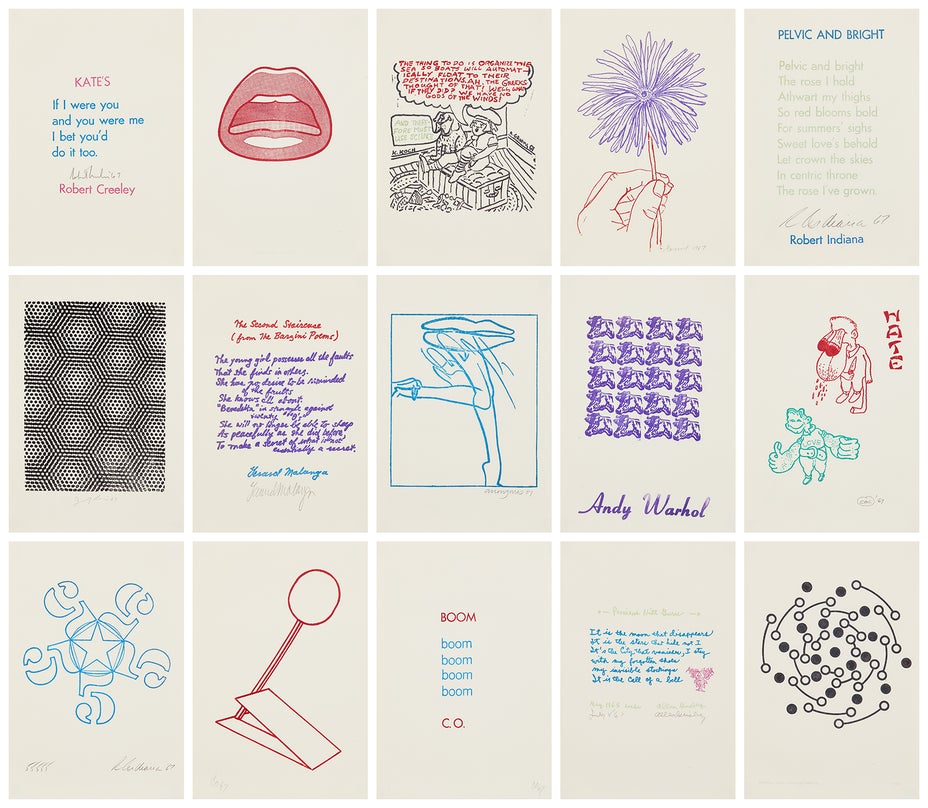 KATE'S
If I were you
and you were me
I bet you'd
do it too.
Robert Creeley
THE THING TO DO IS ORGANIZE THE
SEA SO BOATS WILL AUTOMAT-
ICALLY FLOAT TO THEIR
DESTINATIONS. AH, THE GREEKS
THOUGHT OF THAT! WELL, WHAT
IF THEY DID? WE HAVE NO
GODS OF THE WINDS!
AND THERE
FORE MUST
USE SCIENCE
K. KOCH
PELVIC AND BRIGHT
Pelvic and bright
The rose I hold
Athwart my thighs
So red blooms bold
For summers' sighs
Sweet love's behold
Let crown the skies
In centric throne
The rose I've grown.
R Indiana 67
Robert Indiana
The Second Staircase
(from the Barzini Poems)
The young girl possesses all the faults
That she finds in others.
She has no desire to be reminded
of the faults
She knows all about.
"Benedetta" in struggle against
She will no longer be able to sleep
As peacefully as she did before,
To make a secret of what is not
essentially a secret.
Gerard Malanga
Gerard Malanga
anonymous 67
Andy Warhol
HATE
LOVE
'67
5
R Indiana 67
BOOM
boom
boom
boom
boom
C.O.
It is the moon that disappears
It is the stars that hide not I
It's the City that vanishes, I stay
with my forgotten shoes
my invisible stockings
It is the Call of a bell
Allen Ginsberg
Allen Ginsberg